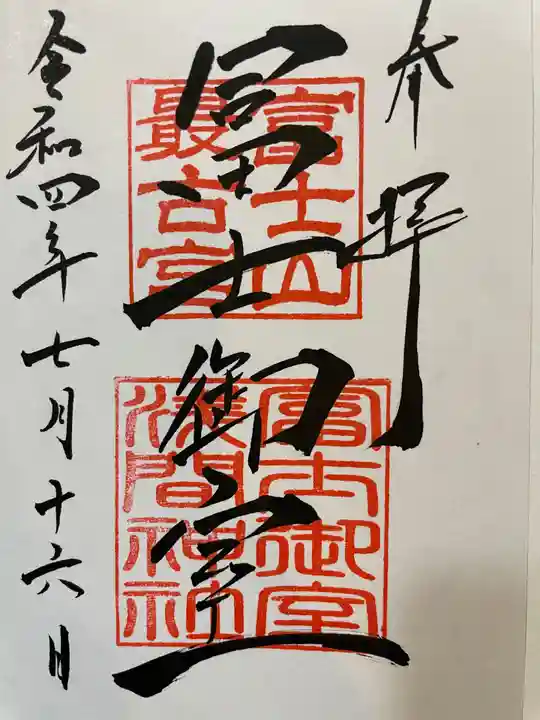 奉拝
富士山
最古宮
冨士御室
冨士御室
浅間神社
令和四年七月十六日